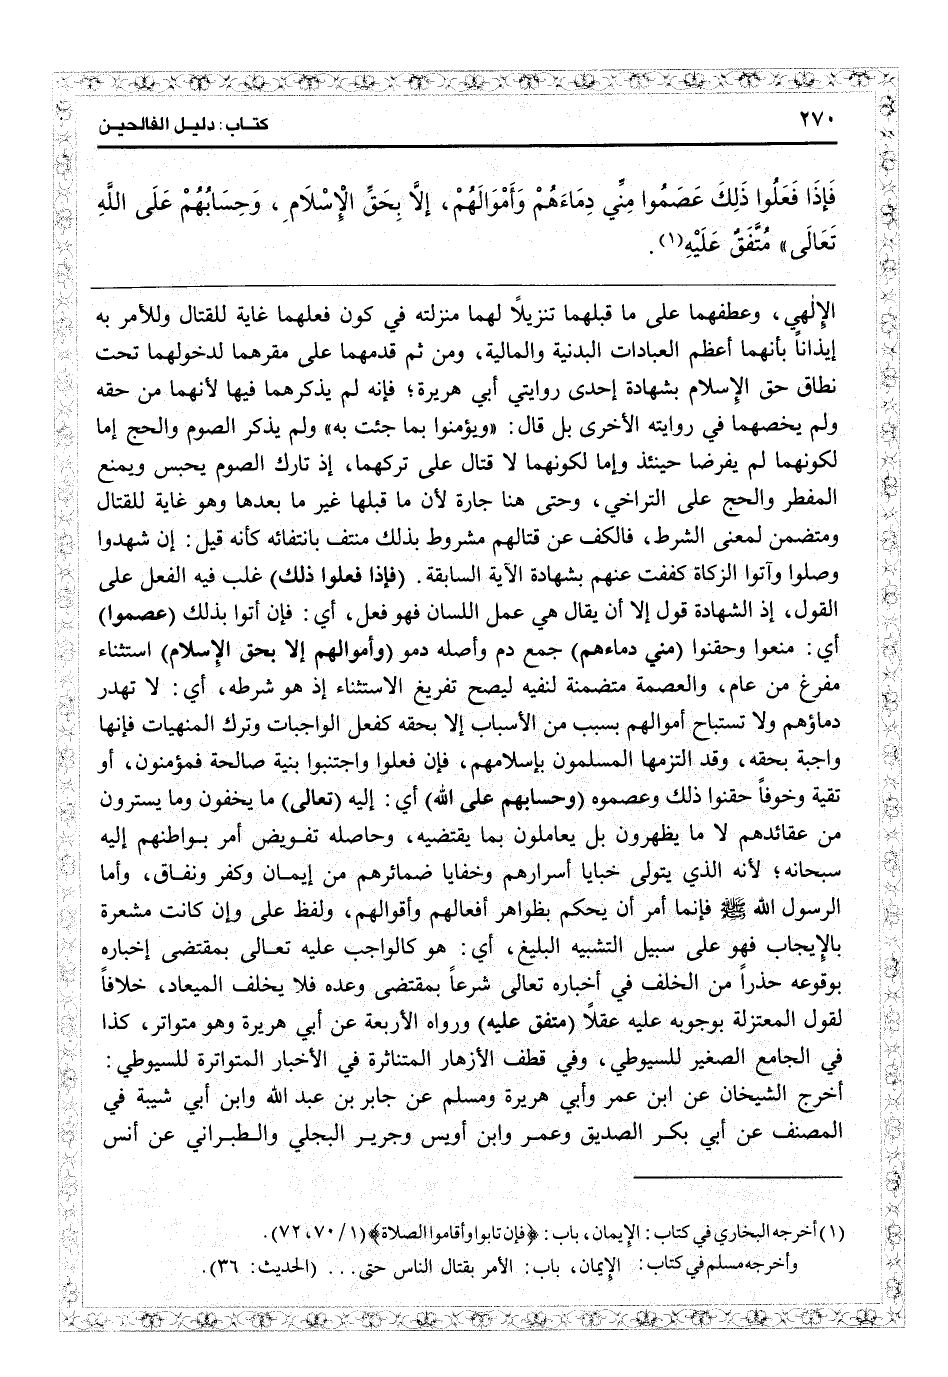 ٢٧٠
كتـاب: دليـل الفالحيـن
فَإِذَا فَعَلُوا ذَلِكَ عَصَمُوا مِنِّي دِمَاءَهُمْ وَأَمْوَالَهُمْ، إلَّا بِحَقِّ الْإِسْلَامِ، وَحِسَابُهُمْ عَلَى اللَّهِ
تَعَالَى» مُتَّفَقٌ عَلَيْهِ(١).
الإِلٰهي، وعطفهما على ما قبلهما تنزيلاً لهما منزلته في كون فعلهما غاية للقتال وللأمر به
إيذاناً بأنهما أعظم العبادات البدنية والمالية، ومن ثم قدمهما على مقرهما لدخولهما تحت
نطاق حق الإِسلام بشهادة إحدى روايتي أبي هريرة؛ فإنه لم يذكرهما فيها لأنهما من حقه
ولم يخصهما في روايته الأخرى بل قال: «ويؤمنوا بما جئت به» ولم يذكر الصوم والحج إما
لكونهما لم يفرضا حينئذ وإما لكونهما لا قتال على تركهما، إذ تارك الصوم يحبس ويمنع
المفطر والحج على التراخي، وحتى هنا جارة لأن ما قبلها غير ما بعدها وهو غاية للقتال
ومتضمن لمعنى الشرط، فالكف عن قتالهم مشروط بذلك منتف بانتفائه كأنه قيل: إن شهدوا
وصلوا وآتوا الزكاة كففت عنهم بشهادة الآية السابقة. (فإذا فعلوا ذلك) غلب فيه الفعل على
القول، إذ الشهادة قول إلا أن يقال هي عمل اللسان فهو فعل، أي: فإن أتوا بذلك (عصموا)
أي: منعوا وحقنوا (مني دماءهم) جمع دم وأصله دمو (وأموالهم إلا بحق الإِسلام) استثناء
مفرغ من عام، والعصمة متضمنة لنفيه ليصح تفريغ الاستثناء إذ هو شرطه، أي: لا تهدر
دماؤهم ولا تستباح أموالهم بسبب من الأسباب إلا بحقه كفعل الواجبات وترك المنهيات فإنها
واجبة بحقه، وقد التزمها المسلمون بإسلامهم، فإن فعلوا واجتنبوا بنية صالحة فمؤمنون، أو
تقية وخوفاً حقنوا ذلك وعصموه (وحسابهم على الله) أي: إليه (تعالى) ما يخفون وما يسترون
من عقائدهم لا ما يظهرون بل يعاملون بما يقتضيه، وحاصله تفـويض أمر بـواطنهم إليه
سبحانه؛ لأنه الذي يتولى خبايا أسرارهم وخفايا ضمائرهم من إيمـان وكفر ونفـاق، وأما
الرسول الله ﷺ فإنما أمر أن يحكم بظواهر أفعالهم وأقوالهم، ولفظ على وإن كانت مشعرة
بالإِيجاب فهو على سبيل التشبيه البليغ، أي: هو كالواجب عليه تعـالى بمقتضى إخباره
بوقوعه حذراً من الخلف في أخباره تعالى شرعاً بمقتضى وعده فلا يخلف الميعاد، خلافاً
لقول المعتزلة بوجوبه عليه عقلاً (متفق عليه) ورواه الأربعة عن أبي هريرة وهو متواتر، كذا
في الجامع الصغير للسيوطي، وفي قطف الأزهار المتناثرة في الأخبار المتواترة للسيوطي:
أخرج الشيخان عن ابن عمر وأبي هريرة ومسلم عن جابر بن عبد الله وابن أبي شيبة في
المصنف عن أبي بكـر الصديق وعمـر وابن أويس وجريـر البجلي والـطبـراني عن أنس
(١) أخرجه البخاري في كتاب: الإيمان، باب: ﴿فإن تابوا وأقاموا الصلاة﴾ (١/ ٧٠، ٧٢).
وأخرجه مسلم في كتاب: الإيمان، باب: الأمر بقتال الناس حتى... (الحديث: ٣٦).